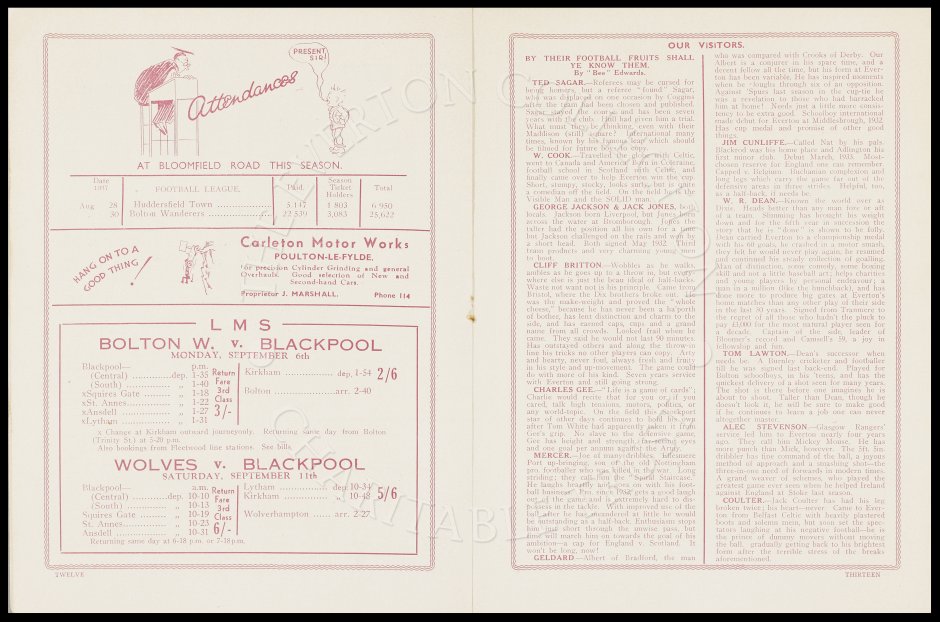 PRESENT SIR!
Attendances
AT BLOOMFIELD ROAD THIS SEASON.
Date 1937 FOOTBALL LEAGUE. Paid. Season Ticket Holders Total
Aug 28 Huddersfield Town 5,147 1 803 6 950
30 Bolton Wanderers 22 539 3,083 25,622
HANG ON TO A GOOD THING!
Carleton Motor Works
POULTON-LE-FYLDE.
for precision Cylinder Grinding and general
Overhauls. Good selection of New and
Second-hand Cars.
Proprietor J. MARSHALL. Phone 114
LMS
BOLTON W. v. BLACKPOOL
MONDAY, SEPTEMBER 6th
Blackpool— p.m.
(Central) dep. 1-35
(South) „ 1-40
xSquires Gate „ 1-18
xSt. Annes „ 1-22
xAnsdell „ 1-27
xLytham „ 1-31
Return Fare 3rd Class 3/-
Kirkham dep. 1-54
Bolton arr. 2-40
2/6
x Change at Kirkham outward journey only. Returning same day from Bolton
(Trinity St.) at 5-20 p.m.
Also bookings from Fleetwood line stations. See bills.
WOLVES v. BLACKPOOL
SATURDAY, SEPTEMBER 11th
Blackpool— a.m.
(Central) dep. 10-10
(South) „ 10-13
Squires Gate „ 10-19
St. Annes „ 10-23
Ansdell „ 10-31
Return Fare 3rd Class 6/-
Lytham dep. 10-34
Kirkham „ 10-48
Wolverhampton arr. 2-27
5/6
Returning same day at 6-18 p.m. or 7-18 p.m.
TWELVE
OUR VISITORS.
BY THEIR FOOTBALL FRUITS SHALL
YE KNOW THEM.
By "Bee" Edwards.
TED SAGAR.—Referees may be cursed for
being homers, but a referee "found" Sagar,
who was displaced on one occasion by Coggins
after the team had been chosen and published.
Sagar stayed the course and has been seven
years with the club. Hull had given him a trial.
What must they be thinking, even with their
Maddison (still) there? International many
times, known by his famous leap which should
be filmed for future boys to copy.
W. COOK.—Travelled the globe with Celtic,
went to Canada and America. Born in Coleraine,
football school in Scotland with Celtic, and
finally came over to help Everton win the cup.
Short, stumpy, stocky, looks surly, but is quite
a comedian off the field. On the field he is the
Visible Man and the SOLID man.
GEORGE JACKSON & JACK JONES, both
locals. Jackson born Liverpool, but Jones born
across the water at Bromborough. Jones the
taller had the position all his own for a time
but Jackson challenged on the rails and won by
a short head. Both signed May 1932. Third
team products and very charming young men
to boot.
CLIFF BRITTON—Wobbles as he walks,
ambles as he goes up to a throw in, but every-
where else is just the beau ideal of half-backs.
Waste not want not is his principle. Came from
Bristol, where the Dix brothers broke out. He
was the make-weight and proved the "whole
cheese," because he has never been a ha'porth
of bother, has lent distinction and charm to the
side, and has earned caps, cups and a grand
name from all crowds. Looked frail when he
came. They said he would not last 90 minutes.
Has outstayed others and along the throw-in
line his tricks no other players can copy. Arty
and hearty, never foul, always fresh and fruity
in his style and up-movement. The game could
do with more of his kind. Seven years service
with Everton and still going strong.
CHARLES GEE.—"Life is a game of cards";
Charlie would recite that for you or, if you
cared, talk high tensions, motors, politics, or
any world-topic. On the field this Stockport
star of other days continues to hold his own
after Tom White had apparently taken it from
Gee's grip. No slave to the defensive game,
Gee has height and strength, far-seeing eyes
and one goal per annum against the Army.
MERCER.—Joe of many dribbles. Ellesmere
Port up-bringing, son of the old Nottingham
pro. footballer who was killed in the war. Long
striding; they call him the "Spatial Staircase."
He laughs heartily but goes on with his foot-
ball business. Pro. since 1932, gets a good laugh
out of the game and is extremely hard to dis-
possess in the tackle. With improved use of the
ball after he has meandered so little he would
be outstanding as a half-back. Enthusiasm stops
him just short through the unwise pass, but
time will march him on towards the goal of his
ambition—a cap for England v. Scotland. It
won't be long, now!
GELDARD—Albert of Bradford, the man
who was compared with Crooks of Derby. Our
Albert is a conjurer in his spare time, and a
decent fellow all the time, but his form at Ever-
ton has been variable. He has inspired moments
when he ploughs through six of an opposition.
Against 'Spurs last season in the cup-tie he
was a revelation to those who had barracked
him at home! Needs just a little more consis-
tency to be extra good. Schoolboy international
made debut for Everton at Middlesbrough, 1932.
Has cup medal and promise of other good
things.
JIM CUNLIFFE.—Called Nat by his pals.
Blackrod was his home place and Adlington his
first minor club. Debut March, 1933. Most-
chosen reserve for England one can remember.
Capped v. Belgium. Buchanan complexion and
long legs which carry the game far out of the
defensive areas in three strides. Helpful, too,
as a half-back, if needs be.
W. R. DEAN.—Known the world over as
Dixie. Heads better than any man fore or aft
of a team. Slimming has brought his weight
down and for the fifth year in succession the
story that he is "done" is shown to be folly.
Dean carried Everton to a championship medal
with his 60 goals, he crashed in a motor smash,
they felt he would never play again, he resumed
and continued his steady collection of goalling.
Man of distinction, some comedy, some boxing
skill and not a little baseball art; helps charities
and young players by personal endeavour; a
man in a million (like the hunchback), and has
done more to produce big gates at Everton's
home matches than any other play of their side
in the last 30 years. Signed from Tranmere to
the regret of all those who hadn't the pluck to
pay £3,000 for the most natural player seen for
a decade. Captain of the side, leader of
Bloomer's record and Camsell's 59, a joy in
fellowship and fun.
TOM LAWTON.—Dean's successor when
needs be. A Burnley cricketer and footballer
till he was signed last back-end. Played for
Bolton schoolboys, in his 'teens, and has the
quickest delivery of a shot seen for many years.
The shot is there before one imagines he is
about to shoot. Taller than Dean, though he
doesn't look it, he will be sure to make good
if he continues to learn a job one can never
altogether master.
ALEC STEVENSON.—Glasgow Rangers'
service led him to Everton nearly four years
ago. They call him Mickey Mouse. He has
more punch than Mick, however. The 5ft. 5in.
dribbler has fine command of the ball, a joyous
method of approach and a smashing shot—the
three-in-one need of forwards in modern times.
A grand weaver of schemes, who played the
greatest game ever seen when he helped Ireland
against England at Stoke last season.
COULTER.—Jack Coulter has had his leg
broken twice; his heart—never. Came to Ever-
ton from Belfast Celtic with heavily plastered
boots and solemn mien, but soon set the spec-
tators laughing at his negative football—he is
the prince of dummy movers without moving
the ball, gradually getting back to his brightest
form after the terrible stress of the breaks
aforementioned.
THIRTEEN